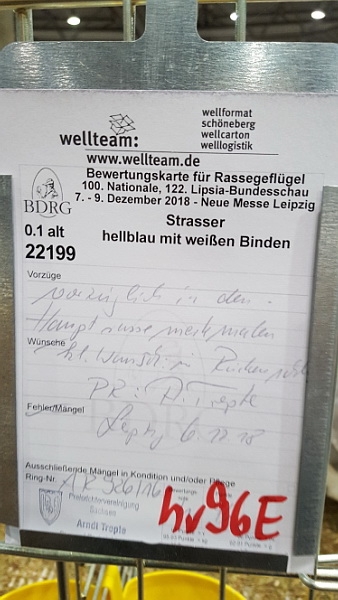 wellteam:
wellformat
schöneberg
wellcarton
welllogistik
www.wellteam.de
Bewertungskarte für Rassegeflügel
100. Nationale, 122. Lipsia-Bundesschau
7. - 9. Dezember 2018 - Neue Messe Leipzig
BDRG
Strasser
0.1 alt
hellblau mit weißen Binden
22199
Vorzüge
vorzüglich in den
Hauptrassemerkmalen
Wünsche
kl. Wunsch in Rücken
PR: A. Trepte
Fehler/Mängel
Leipzig 6.12.18
Ausschließende Mängel in Kondition und/oder Pflege
Ring-Nr. AR 926/16
Preisrichtervereinigung
Sachsen
Arndt Trepte
hv96E